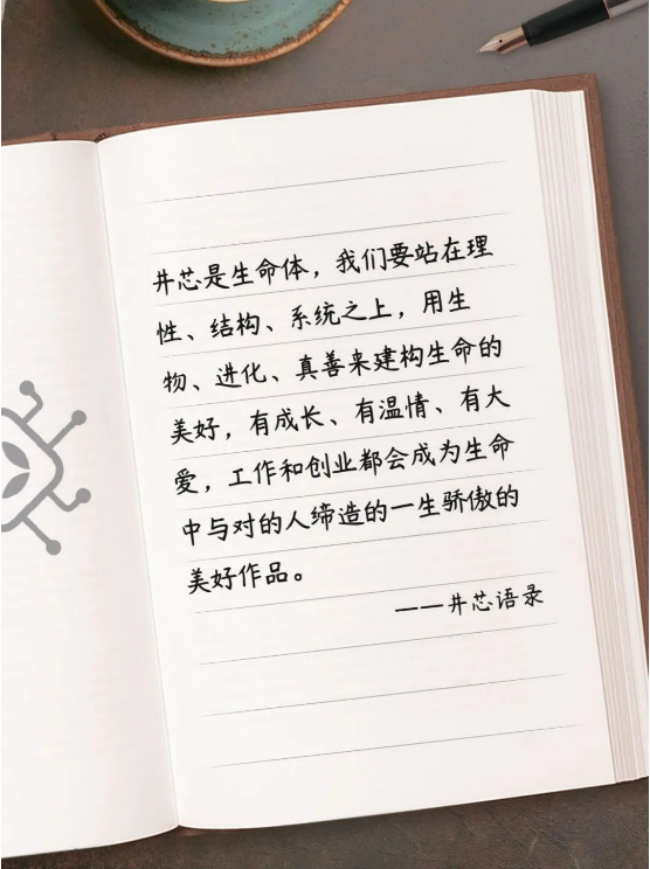 井芯是生命体，我们要站在理
性、结构、系统之上，用生
物、进化、真善来建构生命的
美好，有成长、有温情、有大
爱，工作和创业都会成为生命
中与对的人缔造的一生骄傲的
美好作品。
——井芯语录